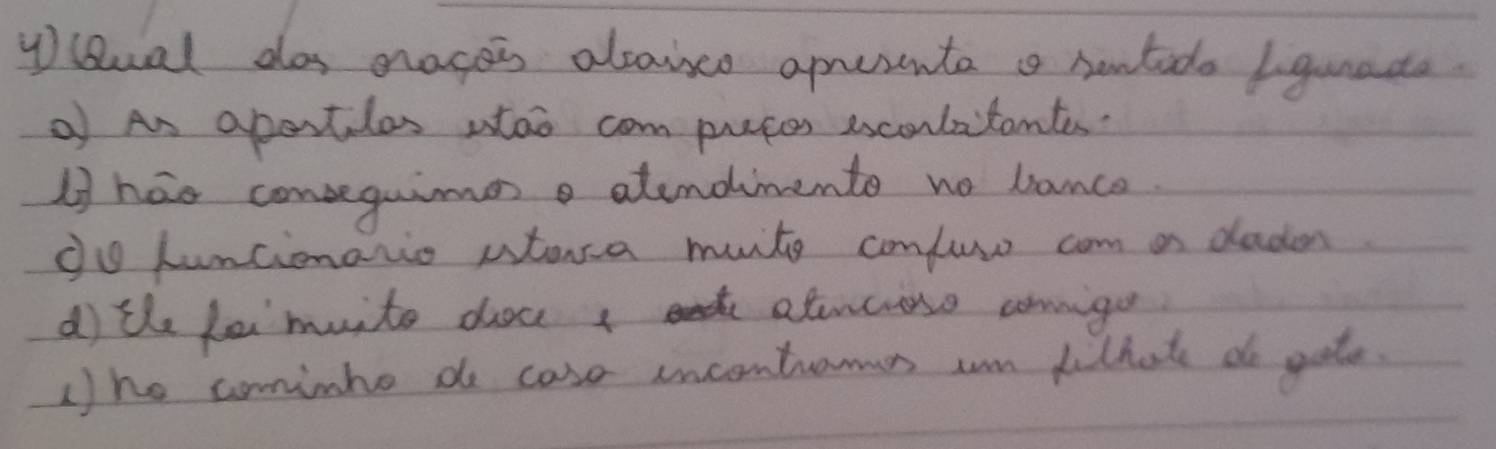 4) Qual das orações abaixo apresenta o sentido figurado.
a) As apostilas estão com preços escorbitantes.
b) não conseguimos o atendimento no banco.
c) O funcionario estava muito confuso com os dados.
d) Ele foi muito doce e atencioso comigo.
e) no caminho de casa encontramos um filhote de gato.